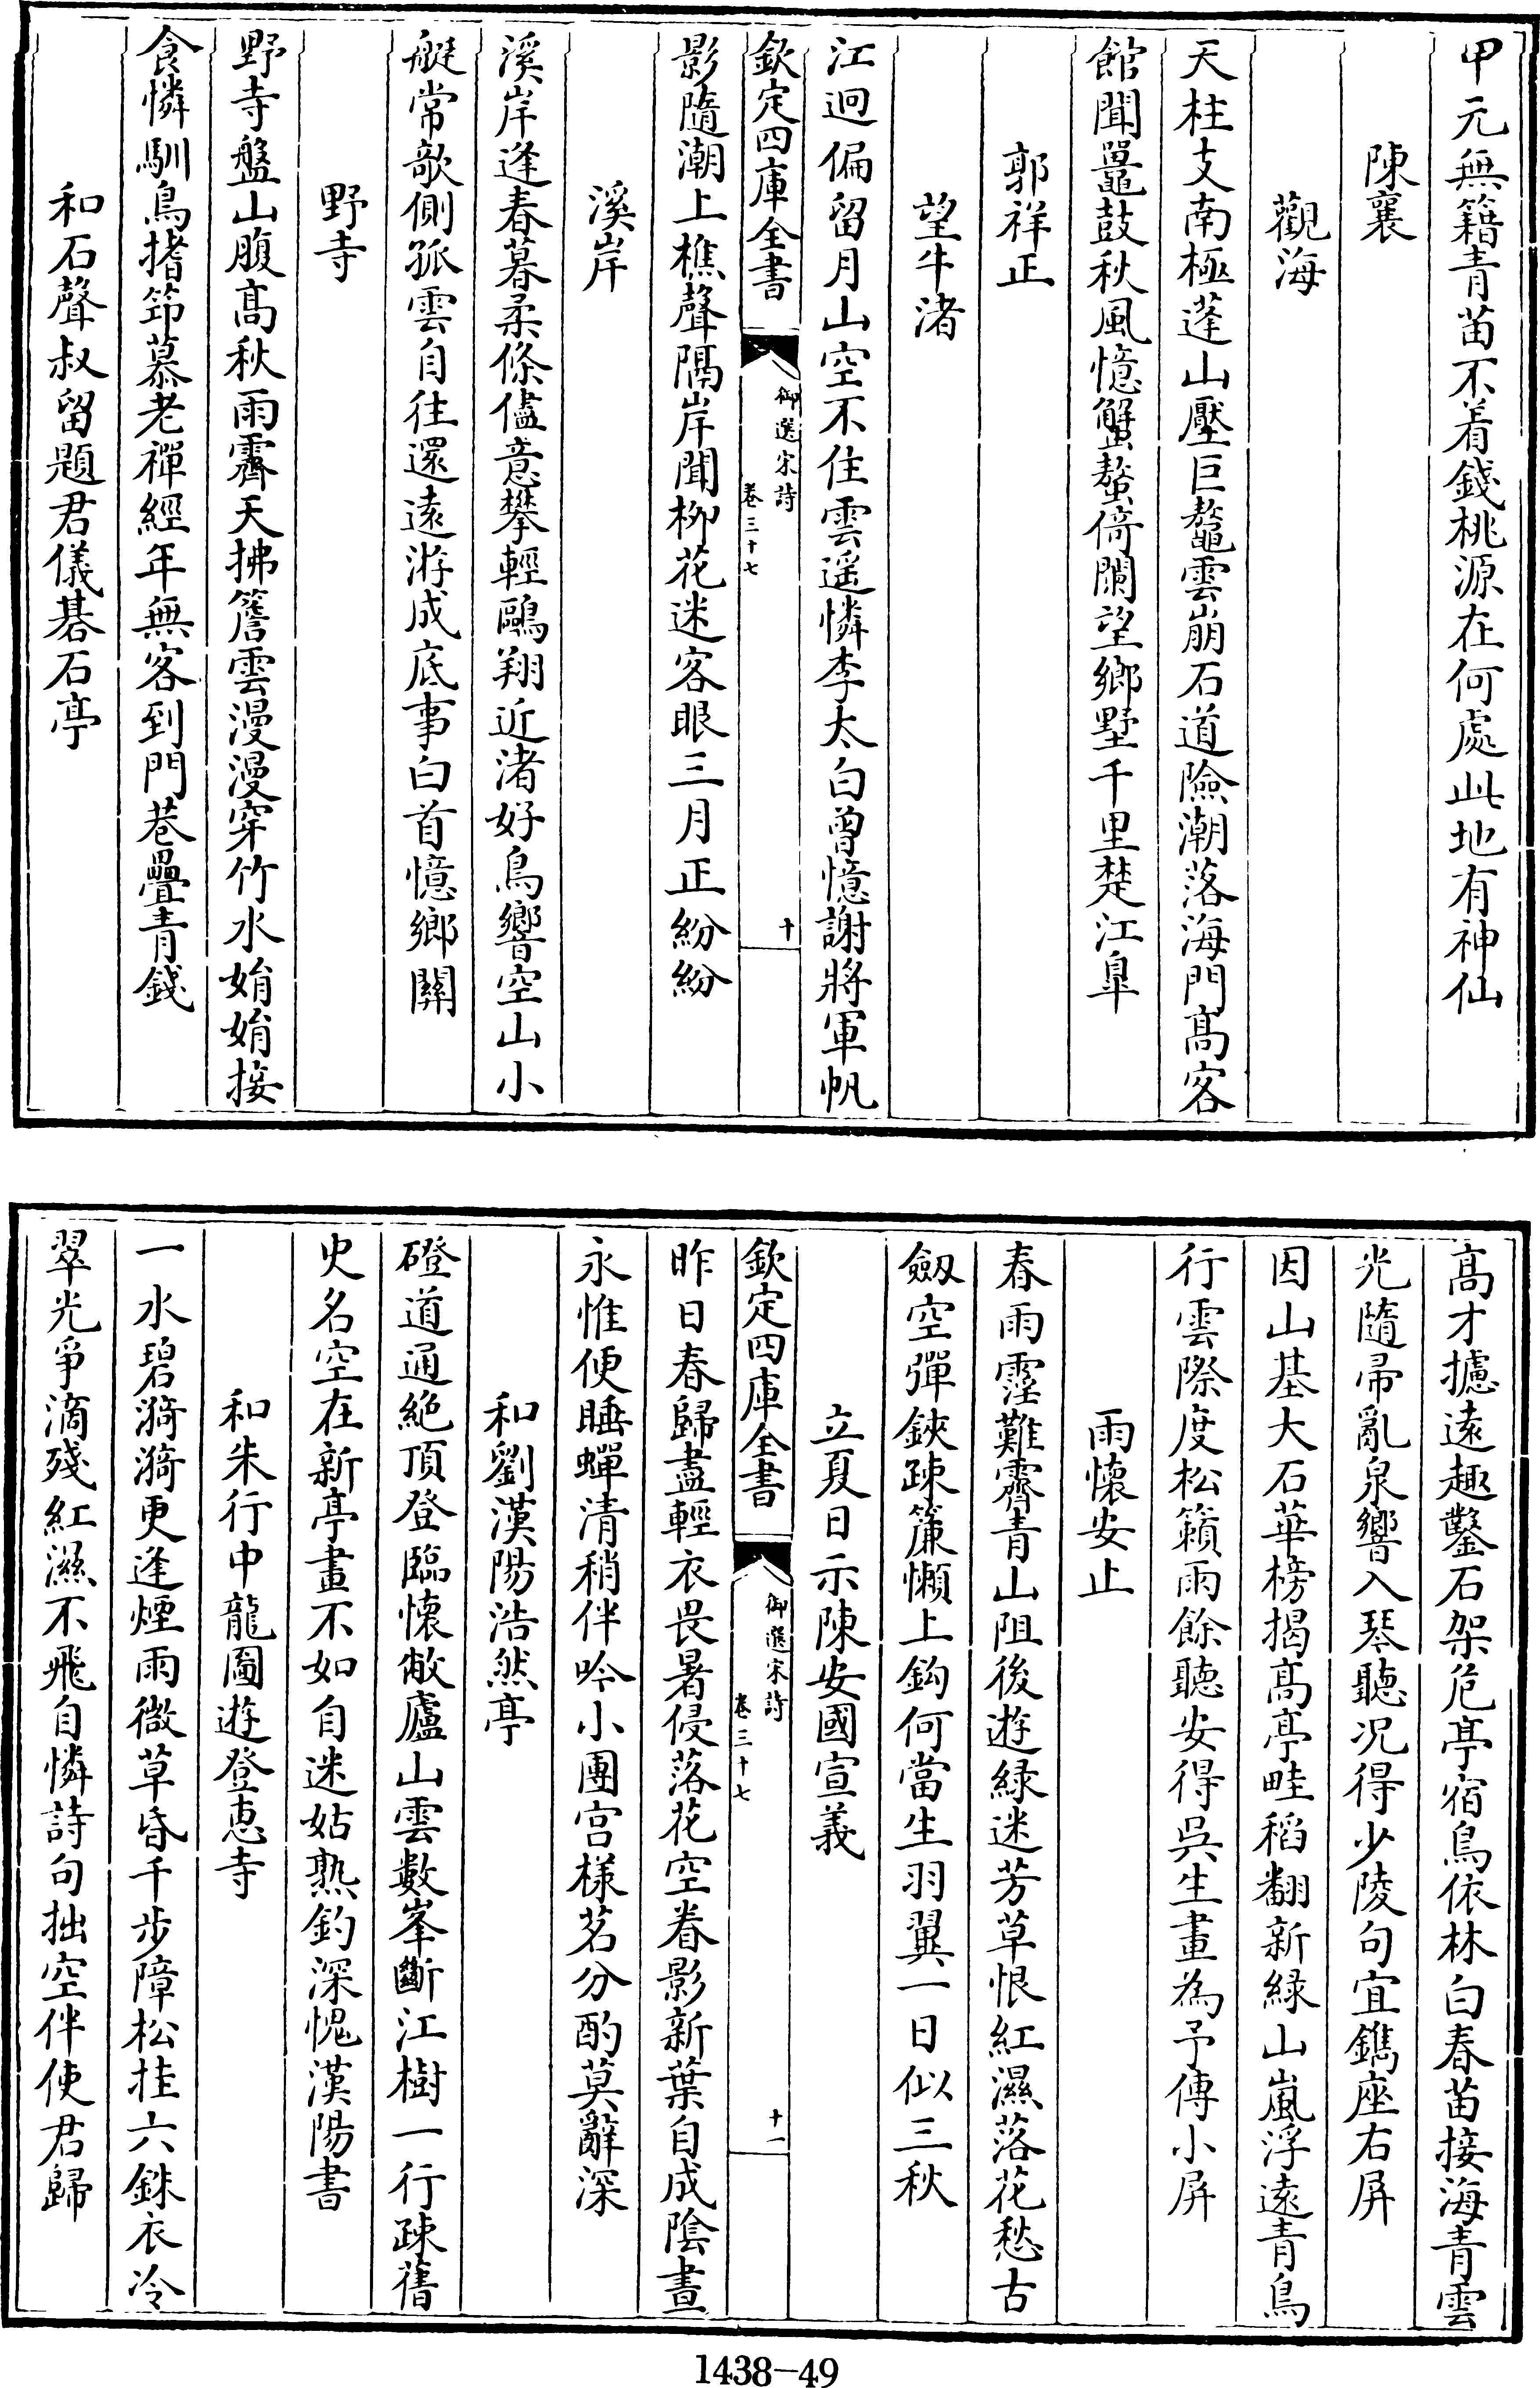 甲元無籍青苗不着錢桃源在何處此地有神仙
陳襄
觀海
天柱支南極蓬山壓巨鼇雲崩石道險潮落海門髙客
館聞鼉鼓秋風憶蟹螯倚闌望鄉墅千里楚江臯
郭祥正
望牛渚
江迥偏留月山空不住雲遥憐李太白曽憶謝將軍帆
欽定四庫全書
御選宋詩
卷三十七
十
影隨潮上樵聲隔岸聞柳花迷客眼三月正紛紛
溪岸
溪岸逢春暮柔條儘意攀輕鷗翔近渚好鳥響空山小
艇常欹側孤雲自往還遠游成底事白首憶鄉關
野寺
野寺盤山腹髙秋雨霽天拂簷雲漫漫穿竹水娟娟接
食憐馴鳥搘筇慕老禪經年無客到門巷疊青錢
和石聲叔留題君儀碁石亭
髙才攄遠趣鑿石架危亭宿鳥依林白春苗接海青雲
光隨帚亂泉響入琴聽况得少陵句宜鐫座右屏
因山基大石華榜揭髙亭畦稻翻新緑山嵐浮遠青鳥
行雲際度松籟雨餘聽安得吳生畫為予傳小屏
雨懐安止
春雨霪難霽青山阻後遊緑迷芳草恨紅濕落花愁古
劔空彈鋏疎簾懶上鈎何當生羽翼一日似三秋
立夏日示陳安國宣義
欽定四庫全書
御選宋詩
卷三十七
十一
昨日春歸盡輕衣畏暑侵落花空眷影新葉自成陰晝
永惟便睡蟬清稍伴吟小團宫様茗分酌莫辭深
和劉漢陽浩然亭
磴道通絶頂登臨懐敝廬山雲數峯斷江樹一行疎舊
史名空在新亭畫不如自迷姑熟釣深愧漢陽書
和朱行中龍圖遊登恵寺
一水碧漪漪更逢煙雨微草昏千步障松挂六銖衣冷
翠光爭滴殘紅濕不飛自憐詩句拙空伴使君歸
1438-49